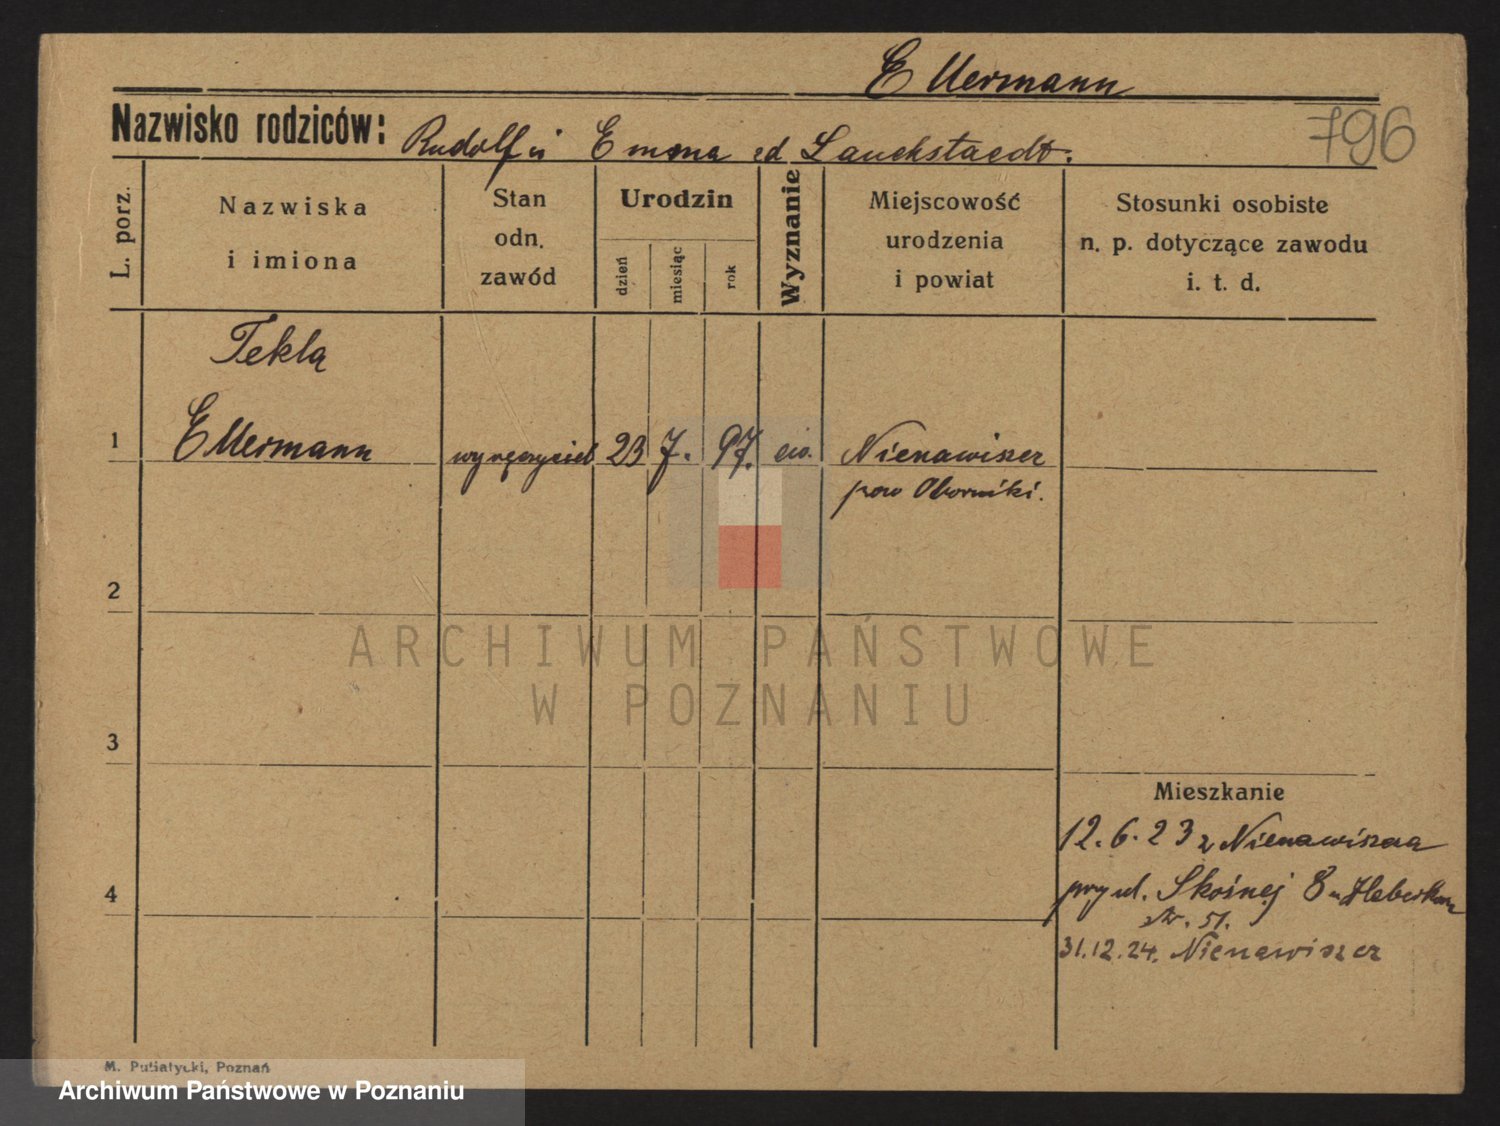 Ellermann
796
Nazwisko rodziców: Rudolf u Emma ed Lauckstaedt.
L. porz.
Nazwiska
i imiona
Stan
odn.
zawód
Urodzin
dzień
miesiąc
rok
Wyznanie
Miejscowość
urodzenia
i powiat
Stosunki osobiste
n. p. dotyczące zawodu
i. t. d.
Tekla
1 Ellermann 23 7. 97. ew. Nienawiszcz
pow Oborniki.
2
3
4
Mieszkanie
12.6.23 z Nienawiszcza
przy ul. Skośnej 8
31.12.24. Nienawiszcz
M. Putiatycki, Poznań
ARCHIWUM PAŃSTWOWE
W POZNANIU
Archiwum Państwowe w Poznaniu